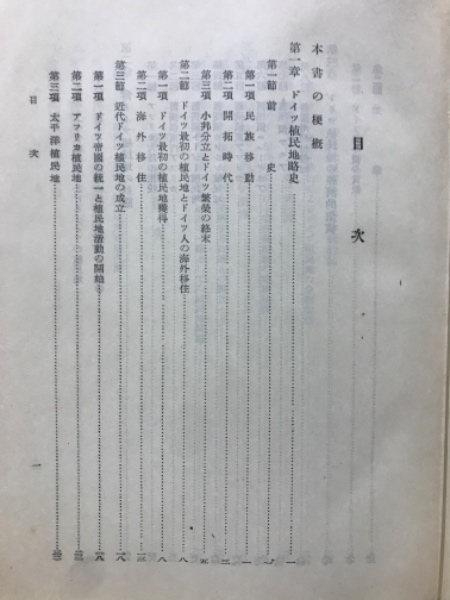 目次
本書の梗概
第一章 ドイツ植民地略史……一
第一節 前史……一
第一項 民族移動……一
第二項 開拓時代……二
第三項 小邦分立とドイツ繁栄の終末……五
第二節 ドイツ最初の植民地とドイツ人の海外移住……八
第一項 ドイツ最初の植民地獲得……八
第二項 海外移住……一三
第三節 近代ドイツ植民地の成立……一八
第一項 ドイツ帝國の統一と植民地活動の開始……一八
第二項 アフリカ植民地
第三項 太平洋植民地
目次
一